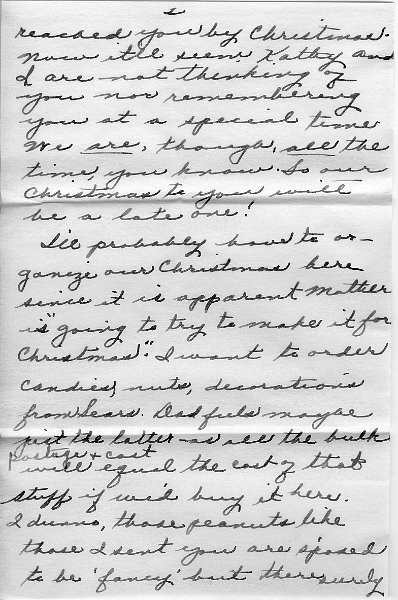 2
reached you by Christmas.
now it'll seem Kathy and
I are not thinking of
you nor remembering
you at a special time
We are, though, all the
time, you know. So our
Christmas to you will
be a late one!
I'll probably have to or-
ganize our Christmas here
since it is apparent Mother
is "going to try to make it for
Christmas". I want to order
candies, nuts, decorations
from Sears. Dad feels maybe
just the latter - as all the bulk
postage + cost
will equal the cost of that
stuff if we'd buy it here.
I dunno, those peanuts like
those I sent you are s'posed
to be 'fancy' but there surely